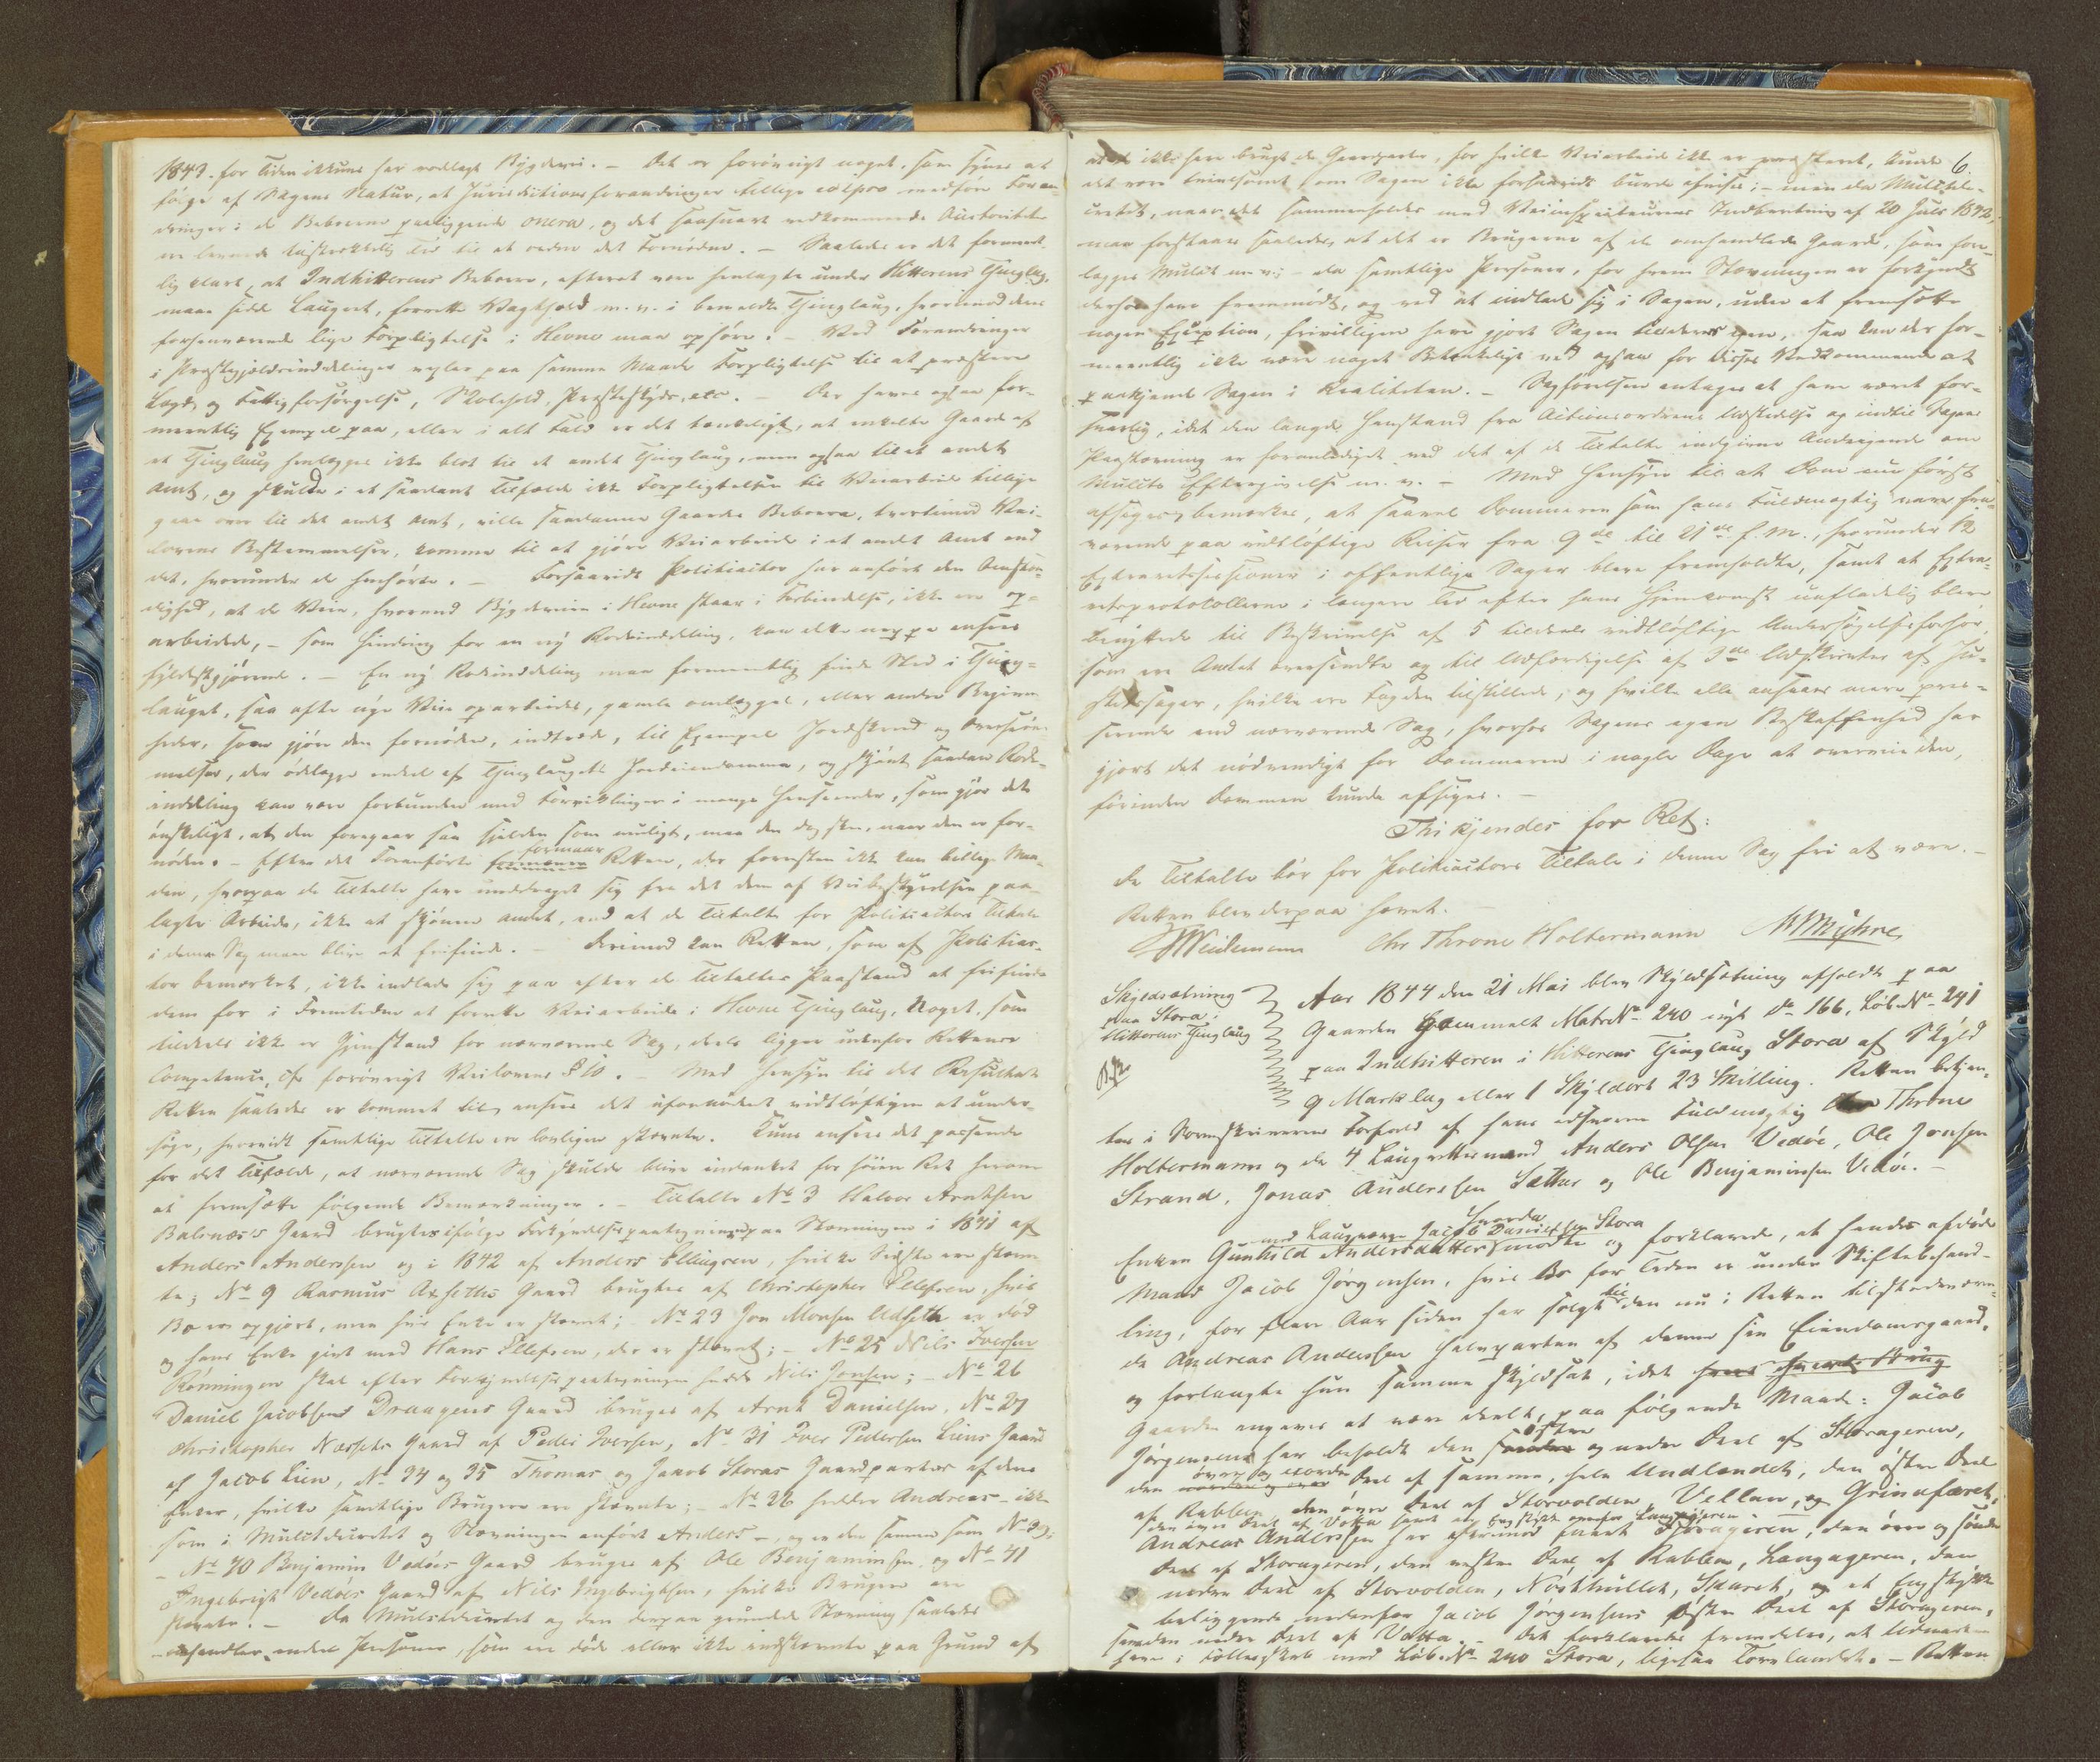 1843. for Tiden ikkuns har nedlagt Bygdevei. – Det er forövrigt noget, som synes at
følge af Sagens Natur, at Jurisdictionsforandringer tillige eo ipso medföre Foran-
dringer i de Beboerne paaliggende onera, og det saasnart vedkommende Autoriteter
ere levnede tilstrækkelig Tid til at ordne det Fornödne. – Saaledes er det formeent-
lig klart, at Indhitterens Beboere, efterat være henlagte under Hitterens Tinglaug,
maae sidde Laugret, forrette Vagthold m. v. i bemeldte Tinglaug, hvorimod deres
forhenværende lige Forpligtelse i Hevne maa ophöre. – Ved Forandringer
i Præstegjeldsinddelinger vexler paa samme Maade Forpligtelse til at præstere
Lægd og Fattigforsørgelse, Skolehold, Præsteskyds, etc. – Der haves ogsaa for-
meentlig Exempel paa, eller i alt Fald er det tænkeligt, at enkelte Gaarde af
et Tinglaug henlægges ikke blot til et andet Tinglaug, men ogsaa til et andet
Amt, og skulde i et saadant Tilfælde ikke Forpligtelsen til Veiarbeide tillige
gaae over til det andet Amt, ville saadanne Gaardes Beboere, tvertimod Vei-
lovens Bestemmelser, komme til at gjöre Veiarbeide i et andet Amt end
det, hvorunder de henhörte. – Forsaavidt Politiactor har anfört den Omstæn-
dighed, at de Veie, hvormed Bygdeveien i Hevne staaer i Forbindelse, ikke ere op-
arbeidede, – som Hindring for en ny Rodeinddeling, kan dette neppe ansees
fyldestgjörende. – En ny Rodeinddeling maa formeentlig finde Sted i Ting-
lauget, saa ofte nye Veie oparbeides, gamle omlægges, eller andre Begiven-
heder, som gjöre den fornöden, indtræde, til Exempel Jordskred og Oversvöm-
melser, der ödelægge endeel af Tinglaugets Jordeiendomme, og skjönt saadan Rode-
inddeling kan være forbunden med Forviklinger i mange Henseender, som gjör det
önskeligt, at den foregaaer saa sjelden som muligt, maa den dog skee, naar den er for-
nöden. – Efter det Foranförte formaaer Retten, der forresten ikke kan billige Maa-
den, hvorpaa de Tiltalte have unddraget sig fra det dem af Veibestyrelsen paa-
lagte Arbeide, ikke at skjönne andet, end at de Tiltalte for Politiactors Tiltale
i denne Sag maae blive at frifinde. – Derimod kan Retten, som af Politiac-
tor bemærket, ikke indlade sig paa efter de Tiltaltes Paastand at frifinde
dem for i Fremtiden at forrette Veiarbeide i Hevne Tinglaug, Noget, som
tildeels ikke er Gjenstand for nærværende Sag, deels ligger udenfor Rettens
Competence, cfr forövrigt Veilovens § 10. – Med Hensyn til det Resultat
Retten saaledes er kommet til, ansees det ufornödent vidtlöftigen at under-
söge, hvorvidt samtlige Tiltalte ere lovligen stævnte. Kuns ansees det passende
for det Tilfælde, at nærværende Sag skulde blive indanket for höiere Ret herom
at fremsætte fölgende Bemærkninger. – Tiltalte No 3 Halvor Arntsen
Balsnæs's Gaard brugtes ifölge Forkyndelsespaategningen paa Stævningen i 1841 af
Anders Andersen og i 1842 af Anders Ellingsen, hvilke Sidste ere stævn-
te; No 9 Rasmus Axseths Gaard bruges af Christopher Ellefsen, hvis
Bo er opgjort, men hvis Enke er stævnt; No 23 Jon Monsen Udseth er död
og hans Enke gift med Hans Ellefsen, der er stævnt; – No 25 Nils Iversen
Rönningen skal efter Forkyndelsespaategningen hedde Nils Jonsen; – No 26
Daniel Jacobsens Draagens Gaard bruges af Arnt Danielsen, No 27
Christopher Næssets Gaard af Peder Iversen, No 31 Iver Pedersen Liens Gaard
af Jacob Lien, No 34 og 35 Thomas og Jacob Storas Gaardparter af deres
Enker, hvilke samtlige Brugere ere stævnte; – No 36 hedder Andreas – ikke
som i Mulctdecretet og Stævningen anfört Anders – og er den samme som No 39;
– No 40 Benjamin Vedöes Gaard bruges af Ole Benjaminsen og No 41
Ingebrigt Vedöes Gaard af Nils Ingebrigtsen, hvilke Brugere ere
stævnte. – Da Mulctdecretet og den derpaa grundede Stævning saaledes
omhandler endeel Personer, som ere döde eller ikke indstævnte paa Grund af
6
at de ikke have brugt de Gaardparter, for hvilke Veiarbeide ikke er præsteret, kunde
det være tvivlsomt om Sagen ikke forsaavidt burde afvises; – men da Mulctde-
cretet, naar det sammenholdes med Veiinspecteurens Indberetning af 20 Juli 1842,
maa forstaaes saaledes, at det er Brugerne af de omhandlede Gaarde, som fore-
lægges Mulct m. v.; – da samtlige Personer, for hvem Stævningen er forkyndt
derhos have fremmödt, og ved at indlade sig i Sagen, uden at fremsætte
nogen Exception, frivilligen have gjort Sagen til deres egen, saa kan der for-
meentlig ikke være noget Betænkeligt ved ogsaa for disses Vedkommende at
paakjende Sagen i Realiteten. – Sagförelsen antages at have været for-
svarlig, idet den længde Henstand fra Actionsordrens Udstedelse og indtil Sagens
Paastævning er foranlediget ved det af de Tiltalte indgivne Andragende om
Mulcts Eftergivelse m. v. – Med Hensyn til at Dom nu först
afsiges, bemærkes, at saavel Dommeren som hans Fuldmægtig vare fra-
værende paa vidtlöftige Reiser fra 9de til 21de f. M., hvorunder 12
Extraretssessioner i offentlige Sager bleve fremholdte, samt at Extra-
retsprotokollerne i længere Tid efter hans Hjemkomst uafladelig bleve
benyttede til Beskrivelse af 5 tildeels vidtlöftige Undersøgelsesforhör,
som ere Amtet oversendte og til Udfærdigelse af 3de Udskrifter af Ju-
stitssager, hvilke ere Fogden tilstillede, og hvilke alle ansaaes mere pres-
serende end nærværende Sag, hvorhos Sagens egen Beskaffenhed har
gjort det nödvendigt for Dommeren i nogle Dage at overveie den,
förinden Dommen kunde afsiges. –
Thi kjendes for Ret:
De Tiltalte bör for Politiactors Tiltale i denne Sag fri at være. –
Retten blev derpaa hævet. –
Weidemann Chr Throne Holtermann Myhre
Skyldsætning
paa Stora i
Hitterens Tinglaug
Aar 1844 den 21 Mai blev Skyldsætning afholdt paa
Gaarden Gammelt Matr No 240 nyt do 166, Löb. No 241
paa Indhitteren i Hitterens Tinglaug Stora af Skyld
9 Marklag eller 1 Skyldort 23 Skilling. Retten betjen-
tes i Sorenskriverens Forfald af hans edsvorne Fuldmægtig Throne
Holtermann og de 4 Laugrettemænd Anders Olsen Vedöe, Ole Jonsen
Strand, Jonas Anderssen Sæther og Ole Benjaminsen Vedöe. –
med Laugværge Jacob Danielsen Stora
Enken Gunhild Andersdatter mödte og forklarede, at hendes afdöde
Mand Jacob Jörgensen, hvis Bo for Tiden er under Skiftebehand-
ling, for flere Aar siden har solgt til den nu i Retten tilstedeværen-
de Andreas Anderssen Halvparten af denne sin Eiendomsgaard,
og forlangte hun samme skyldsat, idet
Gaarden angaves at være deelt paa fölgende Maade: Jacob
Jörgensens har beholdt den östre og nedre Deel af Storageren,
den övre og nordre Deel af samme, hele Uudlændet, den östre Deel
af Rabben, den övre Deel af Storvolden, Vellan, og Grindfæret,
Andreas Anderssen har derimod faaet Storageren, den övre og söndre
Deel af Storageren, den vestre Deel af Rabben, Langageren, den
nedre Deel af Storvolden, Nösthullet, Skaret, og et Engstykke
beliggende nedenfor Jacob Jörgensens östre Deel af Storageren,
samt den nedre Deel af Votta. – Det forklaredes fremdeles, at Udmarken
haves i Fællesskab med Löb. No 240 Stora, ligesaa Torvlandet. – Retten